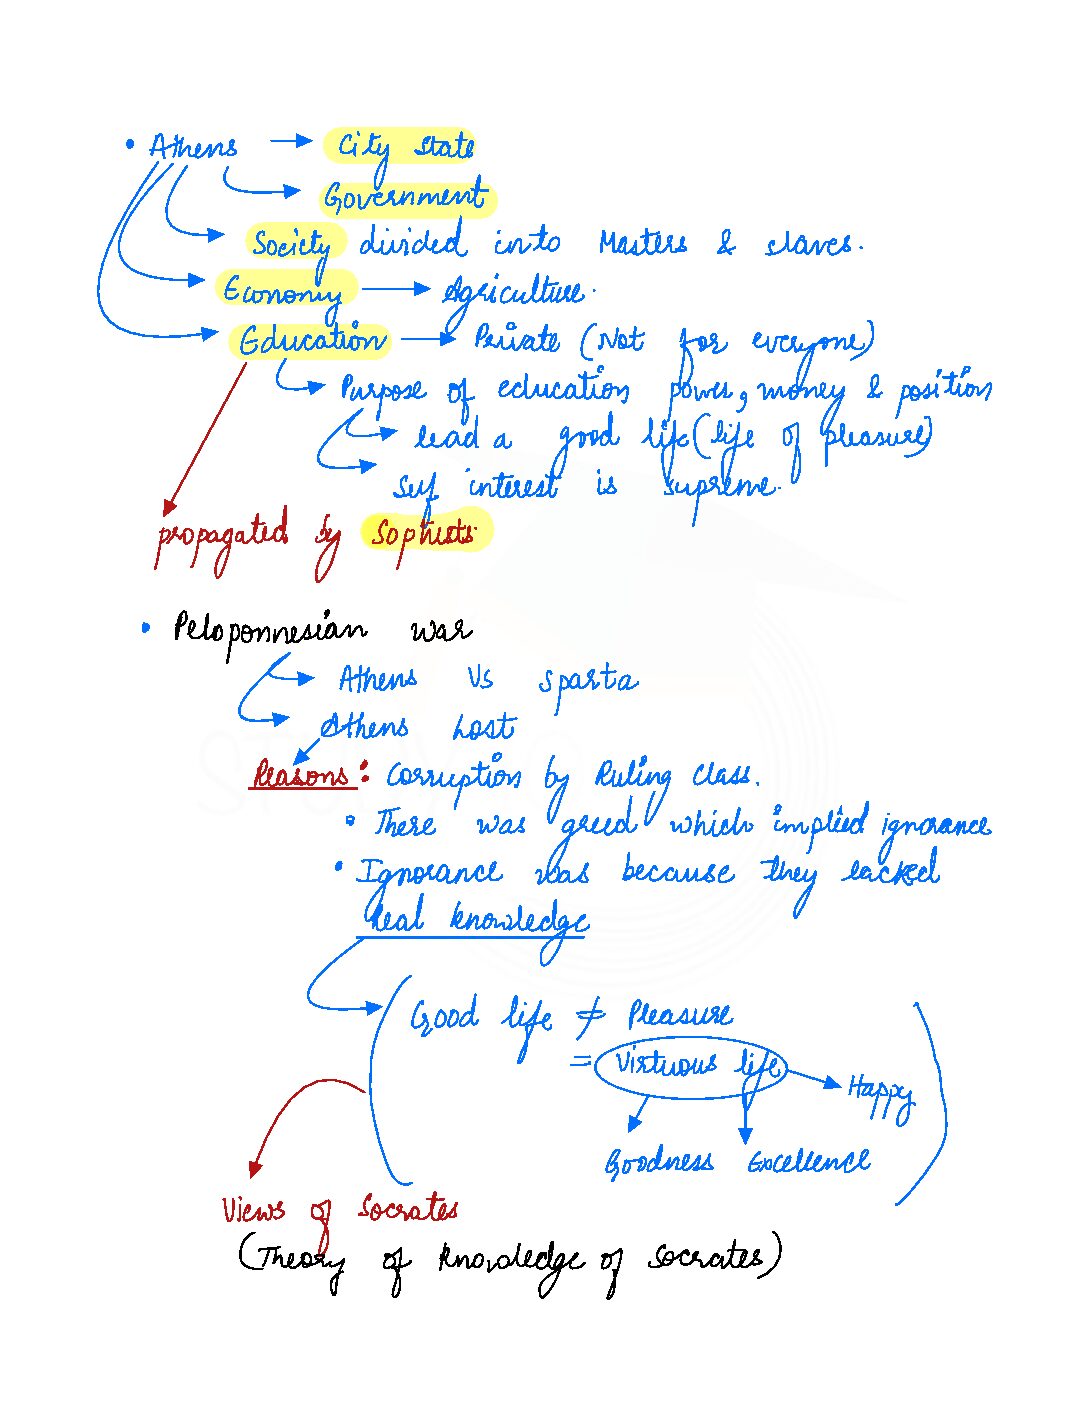 • Athens → City state
Government
Society divided into Masters & slaves.
Economy → Agriculture.
Education → Private (Not for everyone)
Purpose of education power, money & position
lead a good life (life of pleasure)
Self interest is supreme.
propagated by Sophists
• Peloponnesian war
Athens Vs Sparta
Athens Lost
Reasons: Corruption by Ruling Class.
• There was greed which implied ignorance
• Ignorance was because they lacked
Real knowledge
Good life ≠ Pleasure
= Virtuous life
Happy
Goodness Excellence
Views of Socrates
(Theory of knowledge of Socrates)